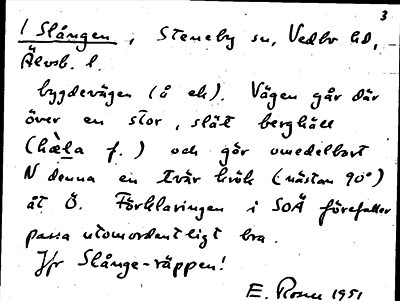 3
1 Slången, Steneby sn, Vedbo hd,
Älvsb. l.
bygdevägen (å ek). Vägen går där
över en stor, slät berghäll
(hæ̀la f.) och gör omedelbart
N denna en tvär krök (nästan 90°)
åt Ö. Förklaringen i SOÄ förefaller
passa utomordentligt bra.
Jfr Slånge-räppen!
E. Rosell 1951